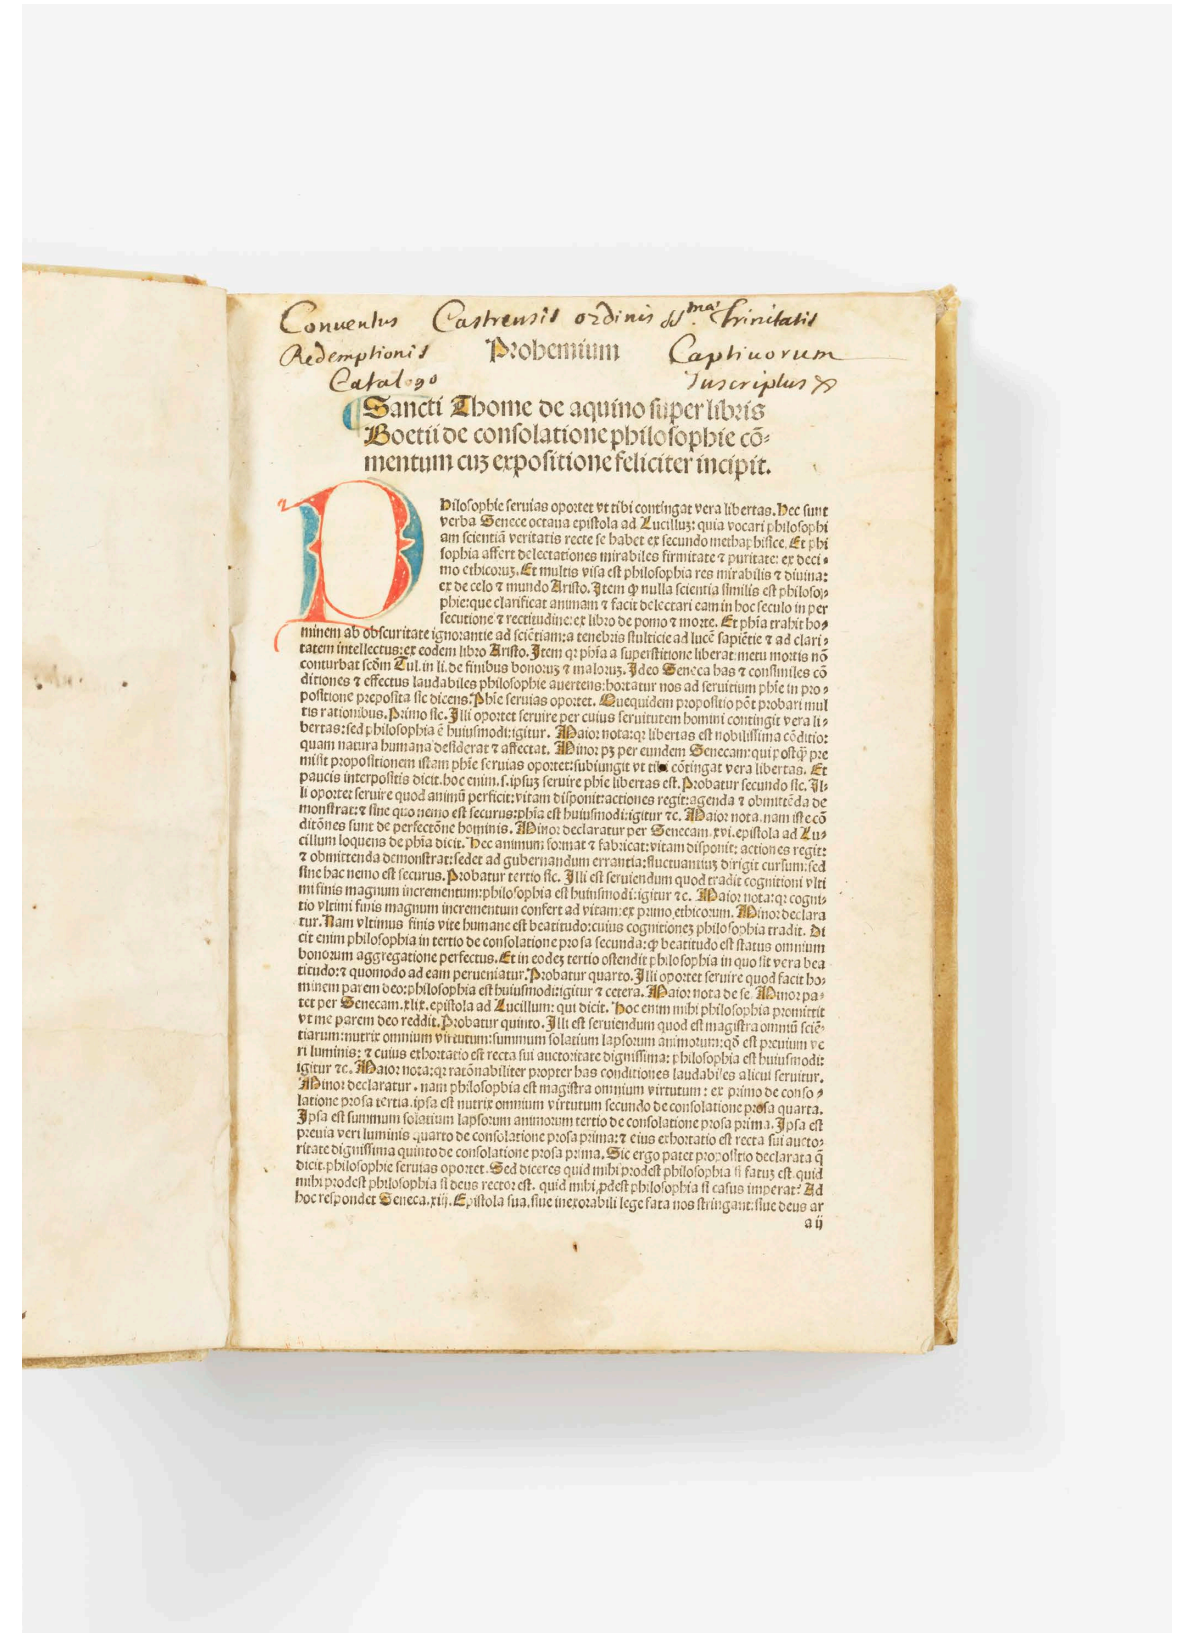 Conuentus Castrensis ordinis ss.mæ Trinitatis
Redemptionis Probemium Captiuorum
Catalogo Inscriptus
Sancti Thome de aquino super libris
Boetii de consolatione philosophie cō-
mentum cuꝫ expositione feliciter incipit.
Philosophie seruias oportet vt tibi contingat vera libertas. Hec sunt
verba Senece octaua epistola ad Lucilluꝫ: quia vocari philosophi
am scientiā veritatis recte se habet ex secundo methaphisice. Et phi
sophia affert delectationes mirabiles firmitate ⁊ puritate: ex deci-
mo ethicoruꝫ. Et multis visa est philosophia res mirabilis ⁊ diuina:
ex de celo ⁊ mundo Aristo. Item ꝙ nulla scientia similis est philoso-
phie: que clarificat animam ⁊ facit delectari eam in hoc seculo in per
secutione ⁊ rectitudine: ex libro de pomo ⁊ morte. Et phīa trahit ho-
minem ab obscuritate ignorantie ad sciētiam: a tenebris stulticie ad lucē sapiētie ⁊ ad clari-
tatem intellectus: ex eodem libro Aristo. Item qꝛ phīa a superstitione liberat: metu mortis nō
conturbat scdm̄ Tul. in li. de finibus bonoruꝫ ⁊ maloruꝫ. Ideo Seneca has ⁊ consimiles cō
ditiones ⁊ effectus laudabiles philosophie auertens: hortatur nos ad seruitium phīe in pro-
positione preposita sic dicens. Phīe seruias oportet. Quequidem propositio pōt probari mul
tis rationibus. Primo sic. Illi oportet seruire per cuius seruitutem homini contingit vera li-
bertas: sed philosophia ē huiusmodi: igitur. Maior nota: qꝛ libertas est nobilissima cōditio:
quam natura humana desiderat ⁊ affectat. Minor pꝫ per eundem Senecam: qui postꝙ̄ pre
misit propositionem istam phīe seruias oportet: subiungit vt tibi cōtingat vera libertas. Et
paucis interpositis dicit. hoc enim .s. ipsuꝫ seruire phīe libertas est. Probatur secundo sic. Il-
li oportet seruire quod animū perficit: vitam disponit: actiones regit: agenda ⁊ obmittēda de
monstrat: ⁊ sine quo nemo est securus: phīa est huiusmodi: igitur ⁊c. Maior nota. nam iste cō
ditōnes sunt de perfectōne hominis. Minor declaratur per Senecam .xvi. epistola ad Lu-
cillum loquens de phīa dicit. Hec animum format ⁊ fabricat: vitam disponit: actiones regit:
⁊ obmittenda demonstrat: sedet ad gubernandum errantia: fluctuantiuꝫ dirigit cursum: sed
sine hac nemo est securus. Probatur tertio sic. Illi est seruiendum quod tradit cognitioni vlti
mi finis magnum incrementum: philosophia est huiusmodi: igitur ⁊c. Maior nota: qꝛ cogni-
tio vltimi finis magnum incrementum confert ad vitam: ex primo ethicorum. Minor declara
tur. Nam vltimus finis vite humane est beatitudo: cuius cognitioneꝫ philosophia tradit. Di
cit enim philosophia in tertio de consolatione prosa secunda: ꝙ beatitudo est status omnium
bonorum aggregatione perfectus. Et in eodeꝫ tertio ostendit philosophia in quo sit vera bea
titudo: ⁊ quomodo ad eam perueniatur. Probatur quarto. Illi oportet seruire quod facit ho-
minem parem deo: philosophia est huiusmodi: igitur ⁊ cetera. Maior nota de se. Minor pa-
tet per Senecam .xlix. epistola ad Lucillum: qui dicit. Hoc enim mihi philosophia promittit
vt me parem deo reddit. Probatur quinto. Illi est seruiendum quod est magistra omniū sciē-
tiarum: nutrix omnium virtutum: summum solatium lapsorum animorum: qđ est preuium ve
ri luminis: ⁊ cuius exhortatio est recta sui auctoritate dignissima: philosophia est huiusmodi:
igitur ⁊c. Maior nota: qꝛ ratōnabiliter propter has conditiones laudabiles alicui seruitur.
Minor declaratur. nam philosophia est magistra omnium virtutum: ex primo de conso-
latione prosa tertia. ipsa est nutrix omnium virtutum secundo de consolatione prosa quarta.
Ipsa est summum solatium lapsorum animorum tertio de consolatione prosa prima. Ipsa est
preuia veri luminis quarto de consolatione prosa prima: ⁊ eius exhortatio est recta sui aucto-
ritate dignissima quinto de consolatione prosa prima. Sic ergo patet propositio declarata q̄
dicit. philosophie seruias oportet. Sed diceres quid mihi prodest philosophia si fatuꝫ est. quid
mihi prodest philosophia si deus rector est. quid mihi ꝓdest philosophia si casus imperat? Ad
hoc respondet Seneca .xiij. Epistola sua. siue inexorabili lege fata nos stringant: siue deus ar
a ij